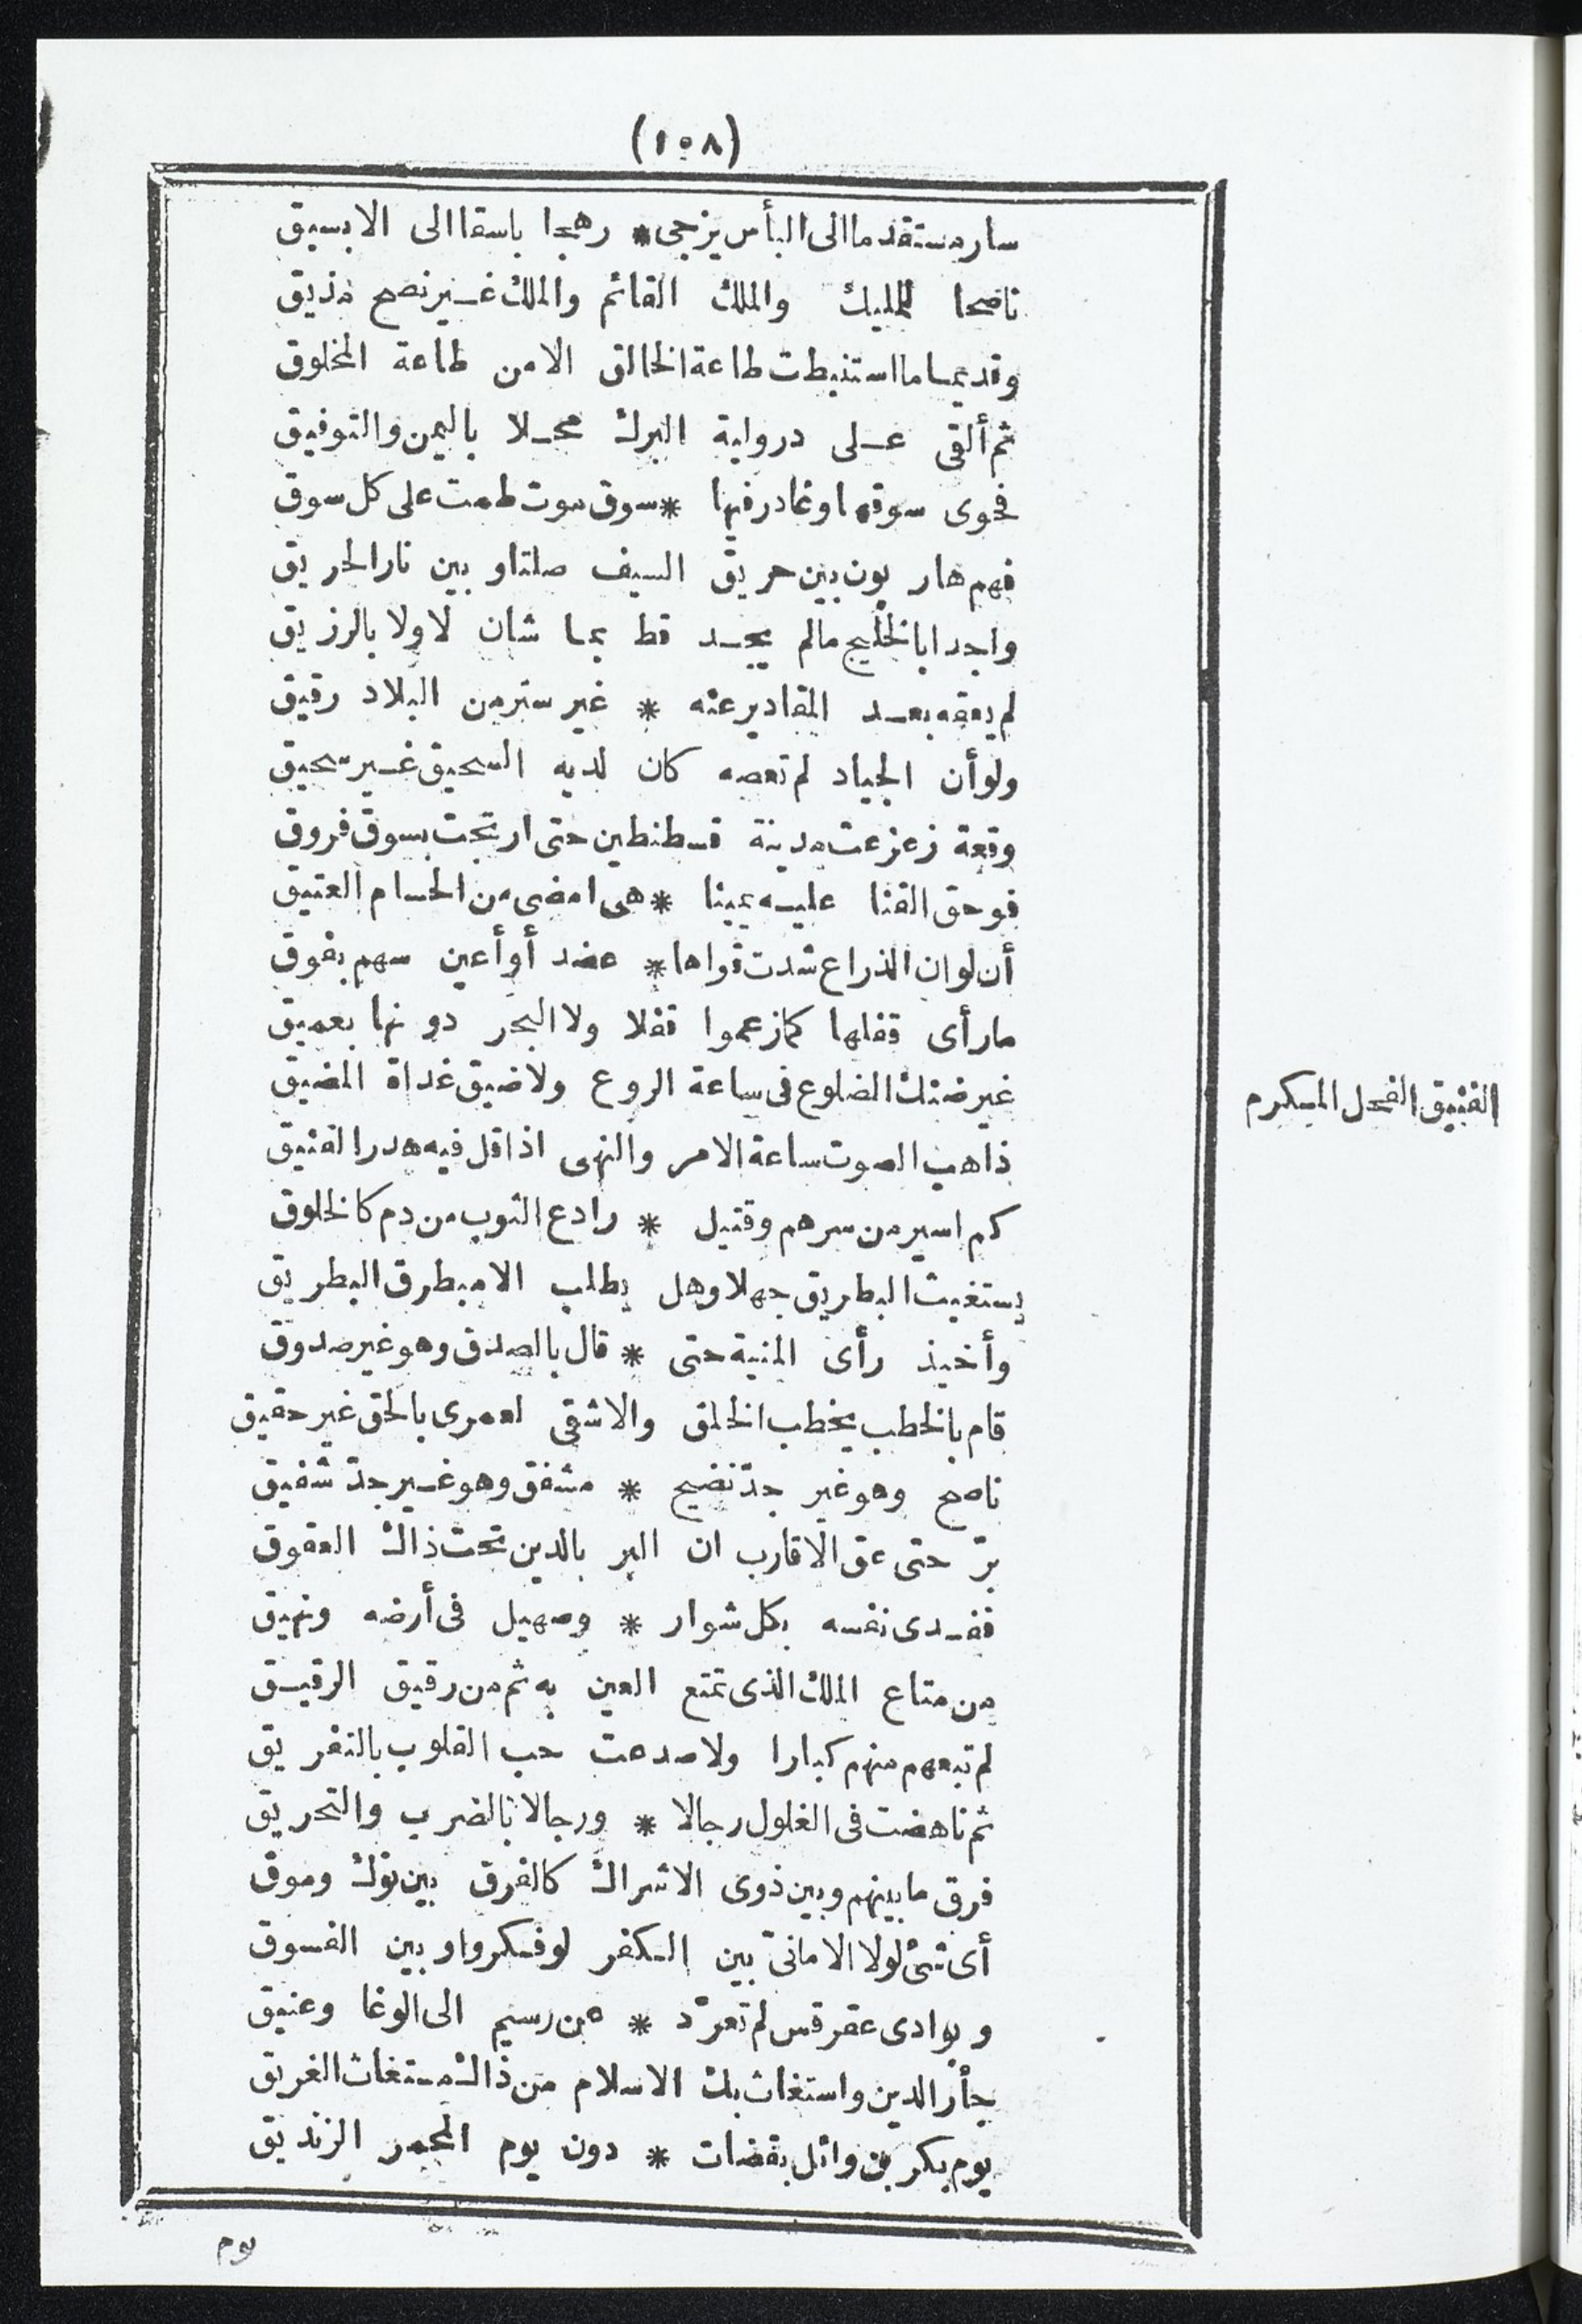 (١٥٨)
سار مستقدما الى البأس يزجى * رهجا باسقا الى الابسيق
ناصحا للمليك والملك القائم والملك غير نصح مذيق
وقديما ما استنبطت طاعة الخالق الا من طاعة المخلوق
ثم ألقى على درولية البرك محلا باليمن والتوفيق
فحوى سوقها وغادر فيها * سوق موت طمت على كل سوق
فهم هاربون بين حريق السيف صلتا وبين نار الحريق
واجدا بالخليج ما لم يجد قط بما شان لا ولا بالرزيق
لم يعقه بعد المقادير عنه * غير ستر من البلاد رقيق
ولو أن الجياد لم تعصه كان لديه السحيق غير سحيق
وقعة زعزعت مدينة قسطنطين حتى ارتجت بسوق فروق
فوحق القنا عليه يمينا * هى امضى من الحسام العتيق
أن لو ان الذراع شدت قواها * عضد أو أعين سهم بفوق
ما رأى قفلها كما زعموا قفلا ولا البحر دونها بعميق
غير ضنك الضلوع فى ساعة الروع ولا ضيق غداة المضيق
الفنيق الفحل المكرم
ذاهب الصوت ساعة الامر والنهى اذا قل فيه هدر الفنيق
كم اسير من سرهم وقتيل * رادع الثوب من دم كالخلوق
يستغيث البطريق جهلا وهل يطلب الا مبطرق البطريق
وأخيذ رأى المنية حتى * قال بالصدق وهو غير صدوق
قام بالخطب يخطب الخلق والاشقى لعمرى بالحق غير حقيق
ناصح وهو غير جدّ نضيح * مشفق وهو غير جدّ شفيق
برّ حتى عق الاقارب ان البر بالدين تحت ذاك العقوق
ففدى نفسه بكل شوار * وصهيل فى أرضه ونهيق
من متاع الملك الذى تمتع العين به ثم من رقيق الرقيق
لم تبعهم منهم كبارا ولا صدعت حب القلوب بالتفريق
ثم ناهضت فى الغلول رجالا * ورجالا بالضرب والتحريق
فرق ما بينهم وبين ذوى الاشراك كالفرق بين نوك وموق
أى شئ لولا الامانىّ بين الكفر لو فكروا وبين الفسوق
وبوادى عقرقس لم تعرّد * عن رسيم الى الوغا وعنيق
جأر الدين واستغاث بك الاسلام من ذاك مستغاث الغريق
يوم بكر بن وائل بقضات * دون يوم المحمر الزنديق
يوم